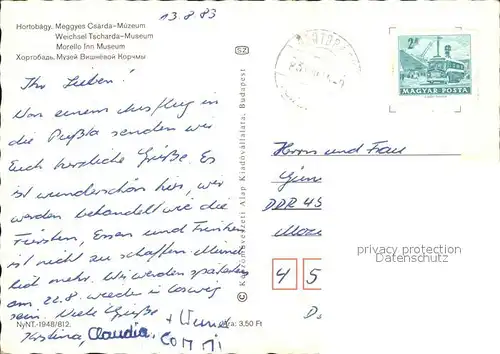 13.8.83
Hortobágy. Meggyes Csárda-Múzeum
Weichsel Tscharda-Museum
Morello Inn Museum
Хортобадь. Музей Вишнёвой Корчмы
SZ
2 Ft
MAGYAR POSTA
Ihr Lieben!
Von einem Ausflug in
die Pußta senden wir
Euch herzliche Grüße. Es
ist wunderschön hier, wir
werden behandelt wie die
Fürsten, Essen und Trinken
ist nicht zu schaffen
mehr. Wir werden spätestens
am 22.8. wieder in Coswig
sein. Viele Grüße
Kristina, Claudia, + Hund
COMMI
© Képzőművészeti Alap Kiadóvállalata, Budapest
Herrn und Frau
DDR 45
4 5
privacy protection
Datenschutz
NyNT.-1948/812.
Ára: 3,50 Ft